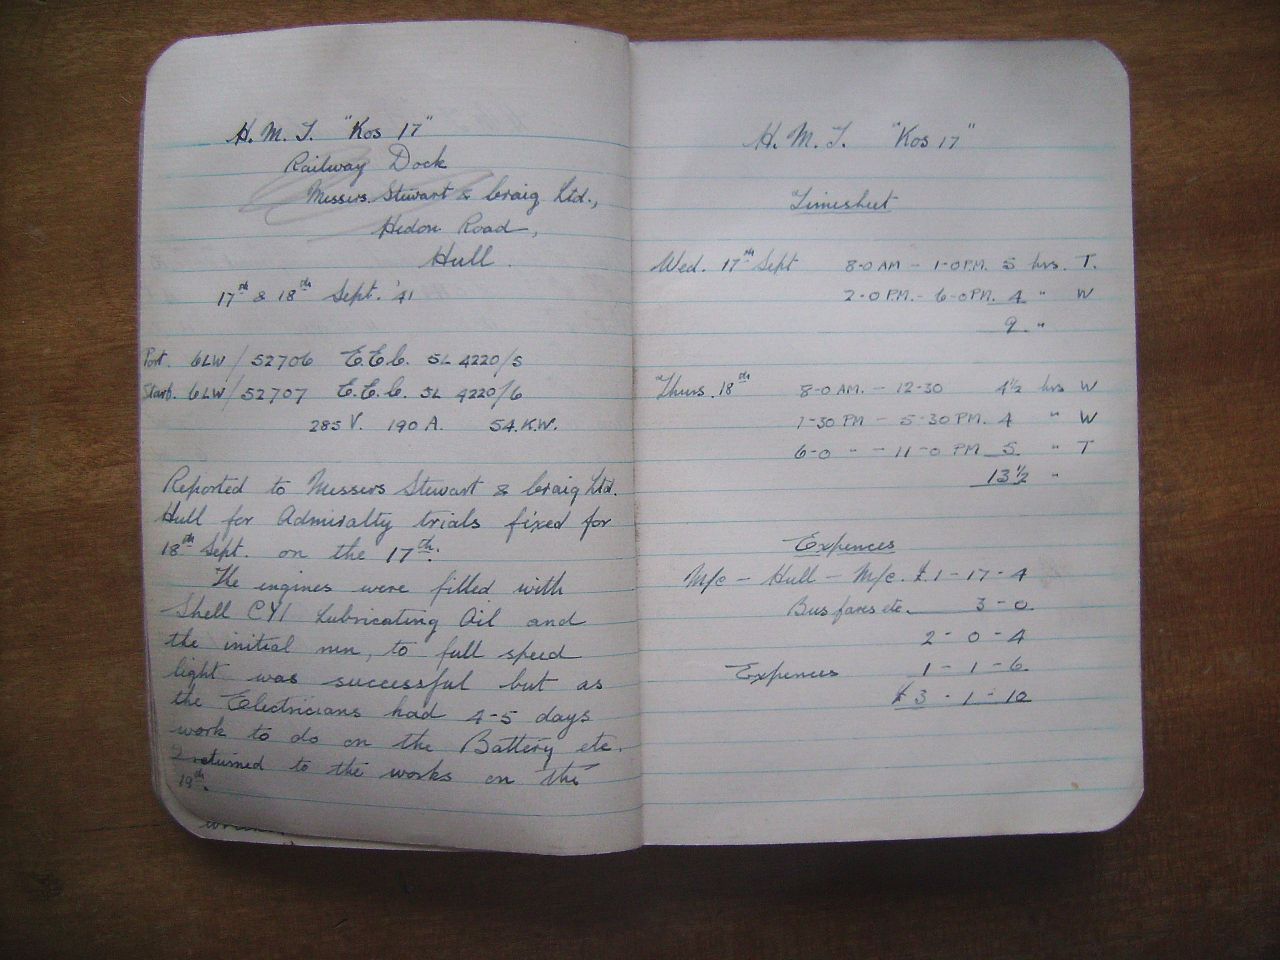 H. M. T. "Kos 17"
Railway Dock
Messers. Stewart & Craig Ltd.,
Hedon Road,
Hull.
17th & 18th Sept. '41
Port. 6LW / 52706 E.E.C. SL 4220/5
Starb. 6LW / 52707 E.E.C. SL 4220/6
285 V. 190 A. 54.K.W.
Reported to Messers Stewart & Craig Ltd.
Hull for Admiralty trials fixed for
18th Sept. on the 17th.
The engines were filled with
Shell CY1 Lubricating Oil and
the initial run, to full speed
light was successful but as
the Electricians had 4-5 days
work to do on the Battery etc.
I returned to the works on the
19th.
H. M. T. "Kos 17"
Timesheet
Wed. 17th Sept 8-0 AM - 1-0 P.M. 5 hrs. T.
2-0 P.M. - 6-0 P.M. 4 " W
9 "
Thurs. 18th 8-0 AM. - 12-30 4½ hrs W
1-30 PM - 5-30 PM. 4 " W
6-0 " - 11-0 PM 5 " T
13½ "
Expences
M/c - Hull - M/c. £1-17-4
Bus fares etc. 3-0.
2-0-4
Expences 1-1-6.
£3-1-10